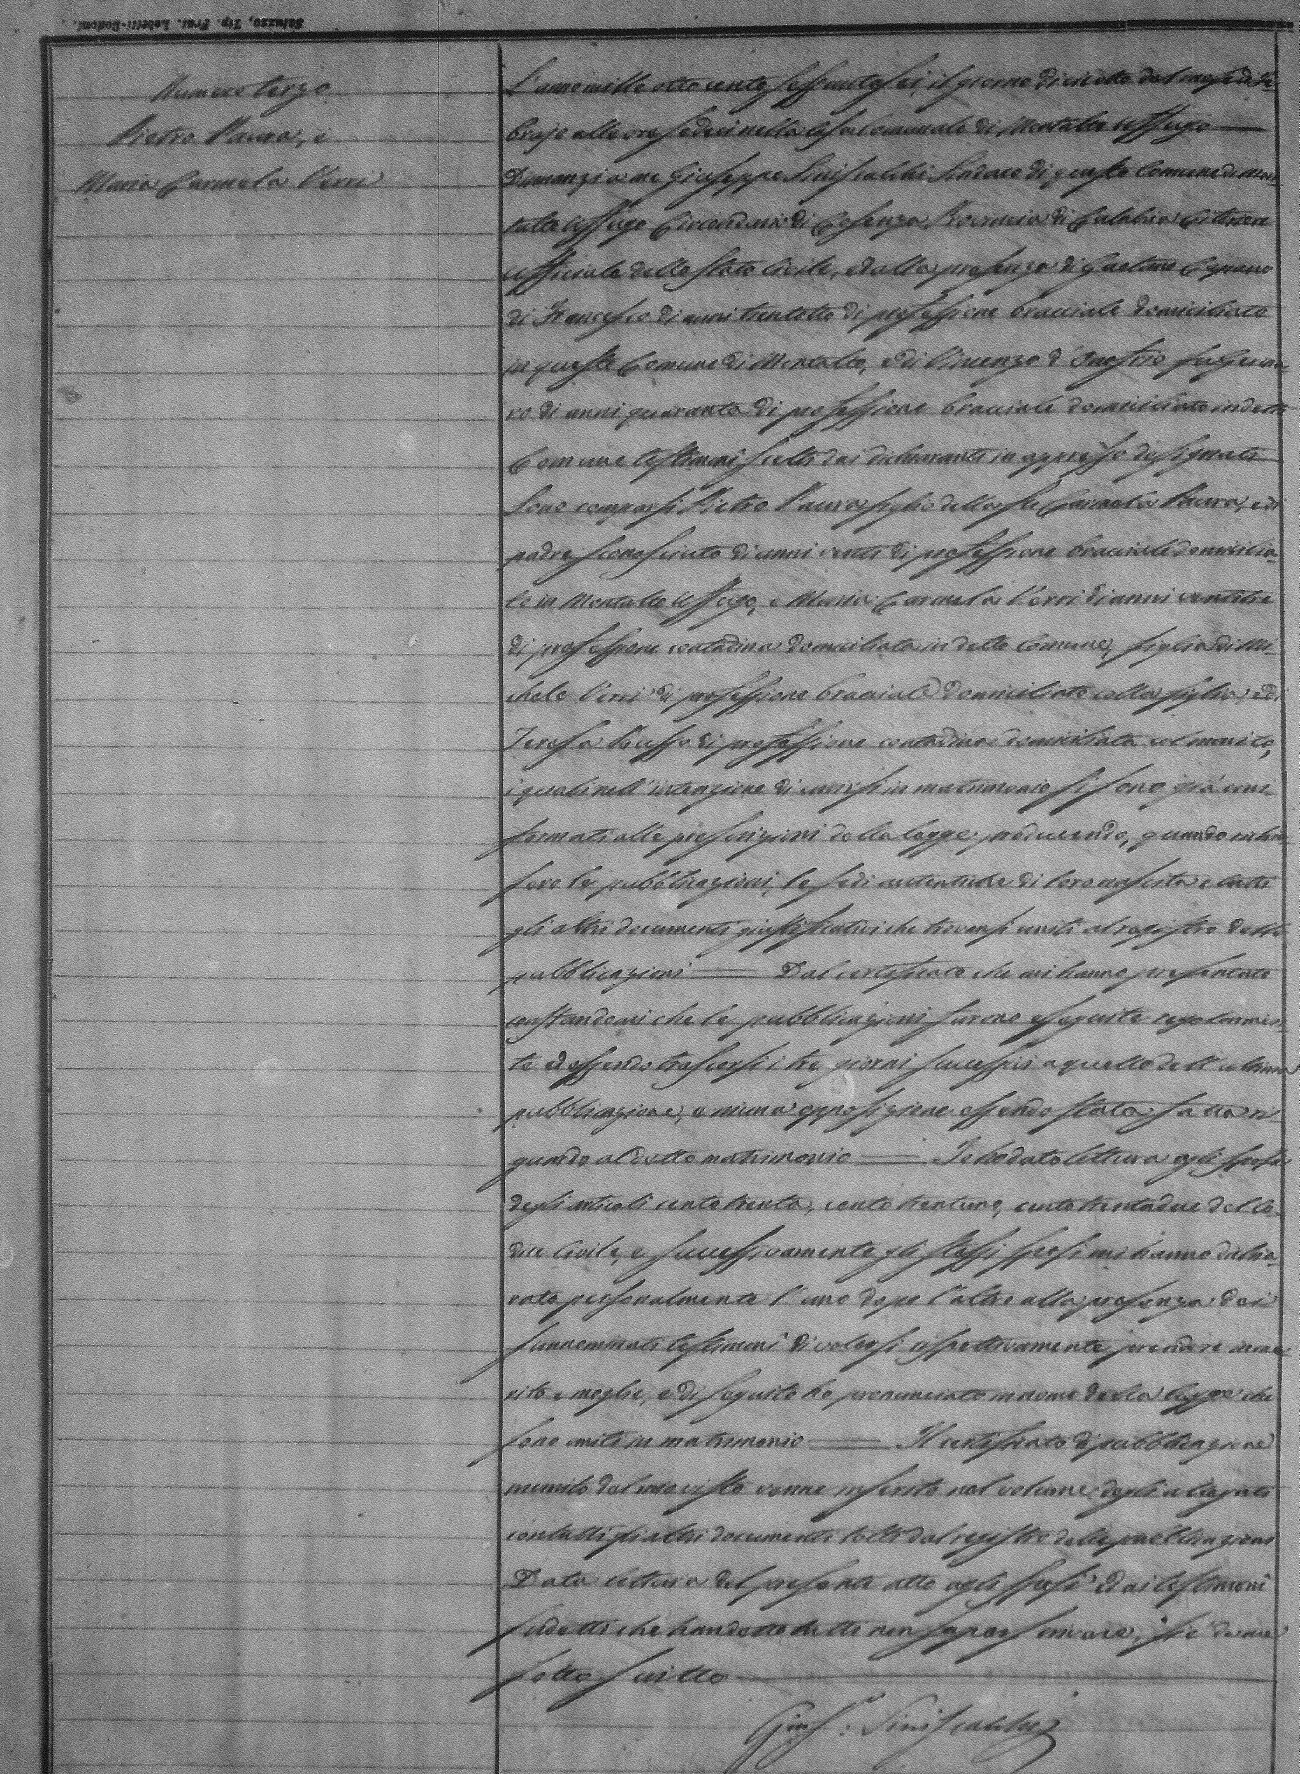 Saluzzo, Tip. Frat. Lobetti-Bodoni.
Numero terzo
Pietro Paura, e
Maria Carmela Perri
L'anno mille ottocento sessantasei, il giorno diciotto del mese di Feb-
brajo alle ore sedici nella casa Comunale di Montalto Uffugo
Dinanzi a me Giuseppe Siniscalchi Sindaco di questo Comune di Mon-
talto Uffugo Circondario di Cosenza, Provincia di Calabria Citeriore
Ufficiale dello Stato Civile, ed alla presenza di Gaetano
di Francesco di anni trentotto di professione bracciale domiciliato
in questo Comune di Montalto, e di Vincenzo d'Onofrio fu Genna-
ro di anni quaranta di professione bracciale domiciliato in detto
Comune testimoni scelti dai dichiaranti in appresso designati
Sono comparsi Pietro Paura figlio della fu Carmela Paura, e di
padre sconosciuto di anni venti di professione bracciale domicilia-
to in Montalto Uffugo, e Maria Carmela Perri di anni ventitre
di professione contadina domiciliata in detto Comune, figlia di Mi-
chele Perri di professione bracciale domiciliato colla figlia, e di
Teresa di professione contadina domiciliata col marito,
i quali nell'intenzione di unirsi in matrimonio si sono già con-
formati alle prescrizioni della legge, producendo, quando
sero le pubblicazioni, le fedi autentiche di loro nascita e tutti
gli altri documenti giustificativi che trovansi uniti al registro delle
pubblicazioni Dal certificato che mi hanno presentato
constandomi che le pubblicazioni furono eseguite regolarmen-
te ed essendo trascorsi i tre giorni successivi a quello dell'ultima
pubblicazione, e niuna opposizione essendo stata fatta ri-
guardo al detto matrimonio Io ho dato lettura agli sposi
degli articoli cento trenta, cento trentuno, cento trentadue del Co-
dice Civile, e successivamente gli stessi sposi mi hanno dichia-
rato personalmente l'uno dopo l'altro alla presenza dei
sunnominati testimoni di volersi rispettivamente prendere
rito e moglie, e di seguito ho pronunciato in nome della legge che
sono uniti in matrimonio Il certificato di pubblicazione
munito del mio visto venne inserito nel volume degli allegati
con tutti gli altri documenti tolti dal registro delle pubblicazioni
Data lettura del presente atto agli sposi ed ai testimoni
sudetti che han detto tutti non saper firmare, si è da me
sottoscritto
Gius: Siniscalchi